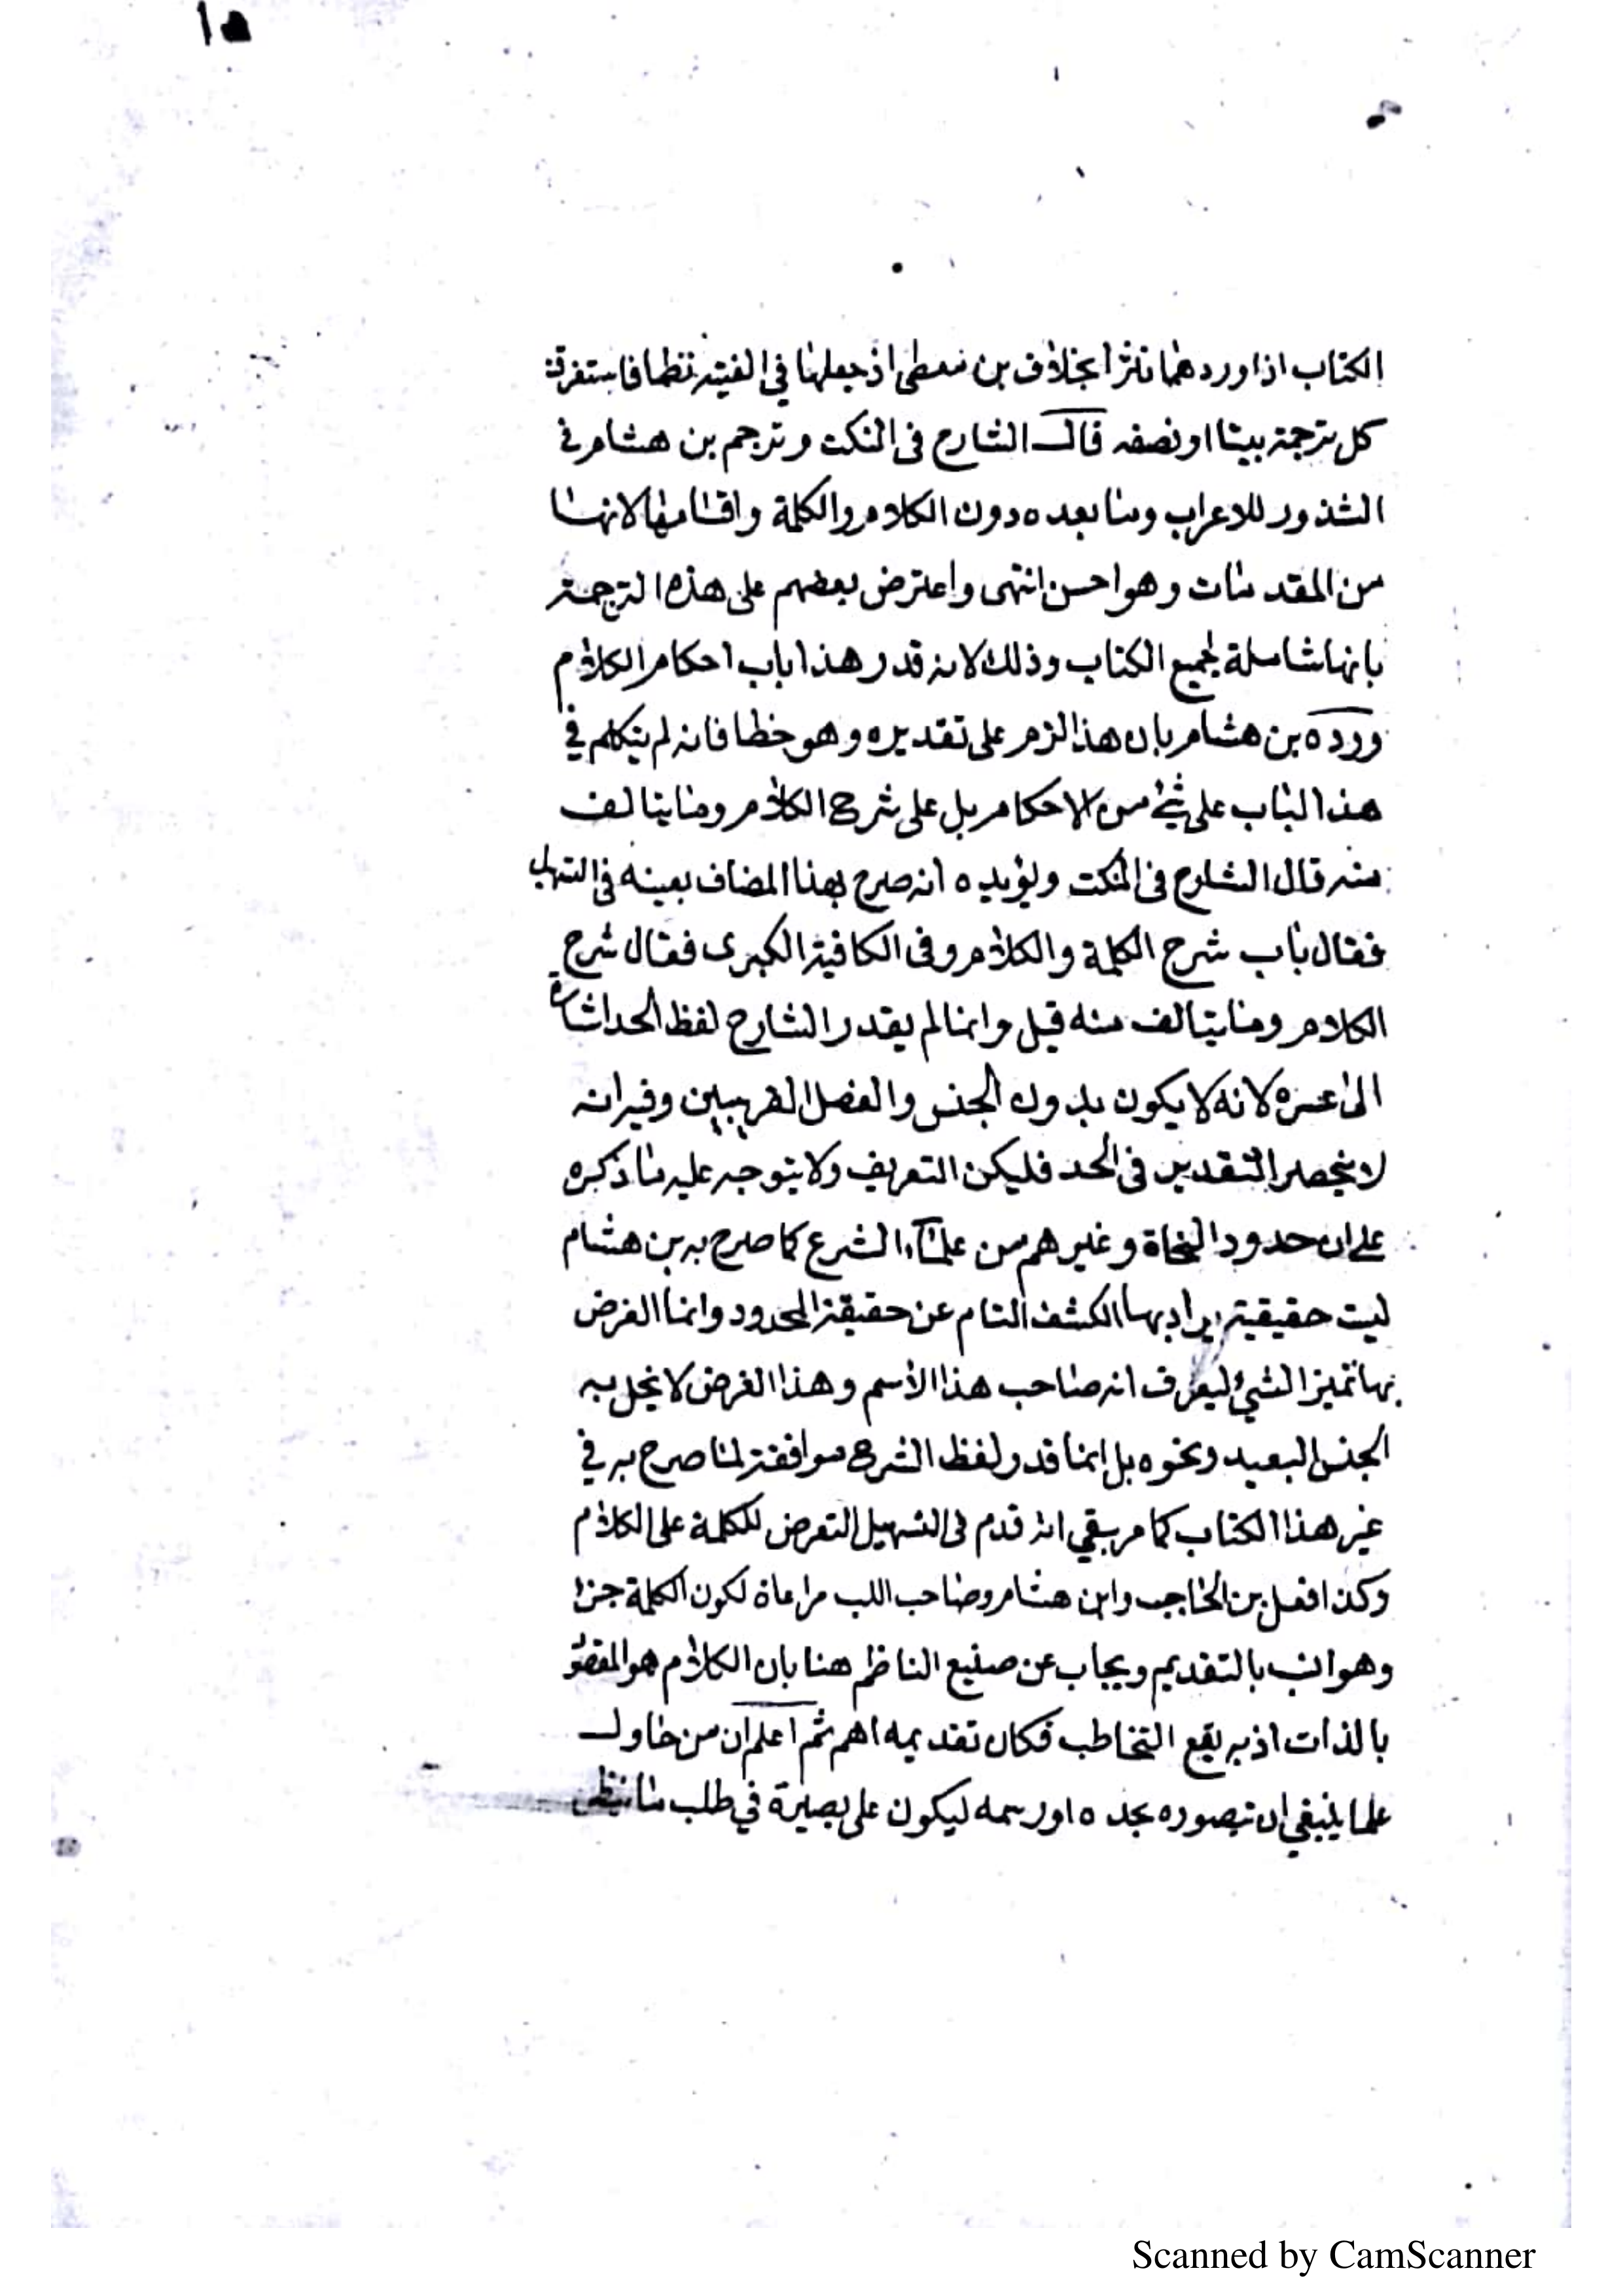 ١٥
الكتاب اذا وردهما نثرا بخلاف بن معطى اذ جعلها في الفيته نظما فاستغرقة
كل ترجمة بيتا او نصفه قال الشارح فى النكت وترجم بن هشام في
الشذور للاعراب وما بعده دون الكلام والكلمة واقسامها لانها
من المقدمات وهو احسن انتهى واعترض بعضهم على هذه الترجمة
بانها شاملة لجميع الكتاب وذلك لانه قدر هذا باب احكام الكلام
ورده بن هشام بان هذا لزم على تقديره وهو خطا فانه لم يتكلم في
هذا الباب على شئ من الاحكام بل على شرح الكلام وما يتالف
منه قال الشارح فى النكت ويؤيده انه صرح بهذا المضاف بعينه فى التسهيل
فقال باب شرح الكلمة والكلام وفى الكافية الكبرى فقال شرح
الكلام وما يتالف منه قيل وانما لم يقدر الشارح لفظ الحد اشارة
الى عسره لانه لا يكون بدون الجنس والفصل القريبين وفيه انه
لا ينحصر التقدير فى الحد فليكن التعريف ولا يتوجه عليه ما ذكره
على ان حدود النحاة وغيرهم من علماء الشرع كما صرح به بن هشام
ليت حقيقية يراد بها الكشف التام عن حقيقة المحدود وانما الغرض
بها تميز الشئ ليعرف انه صاحب هذا الاسم وهذا الغرض لا يخل به
الجنس البعيد ونحوه بل انما قدر لفظ الشرح موافقة لما صرح به في
غير هذا الكتاب كما مر بقي انه قدم فى التسهيل التعرض للكلمة على الكلام
وكذا فعل بن الحاجب وابن هشام وصاحب اللب مراعاة لكون الكلمة جزا
وهو انسب بالتقديم ويجاب عن صنيع الناظم هنا بان الكلام هو المقصو
بالذات اذ به يقع التخاطب فكان تقديمه اهم ثم اعلم ان من حاول
علما ينبغي ان يتصوره بحده او رسمه ليكون على بصيرة في طلب ما
Scanned by CamScanner